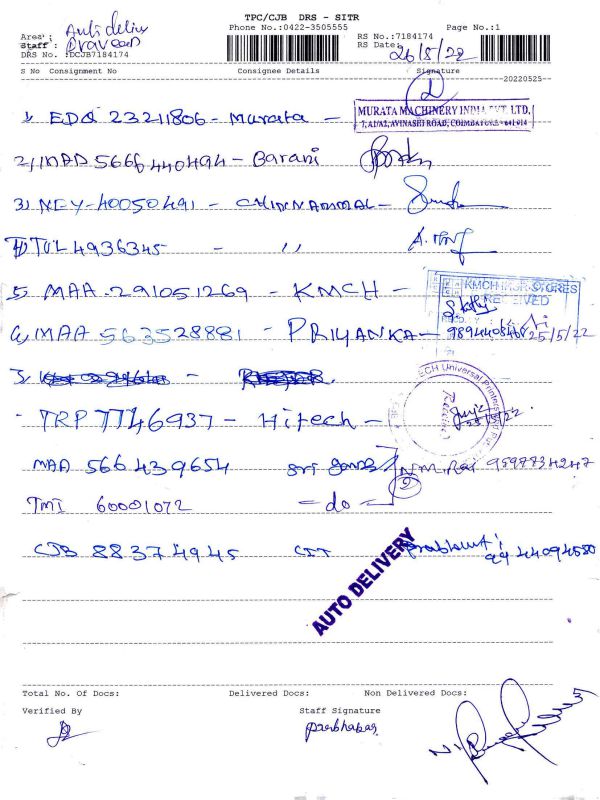 TPC/CJB DRS - SITR
Phone No.:0422-3505555
Page No.:1
Area :
Auto delivery
RS No.:7184174
Staff :
Praveen
RS Date:
26/5/22
DRS No. :DCJB7184174
S No Consignment No Consignee Details Signature
20220525
1) EDQ 23211806 - Murata -
MURATA MACHINERY INDIA PVT. LTD.
7, AVINASHI ROAD, COIMBATORE - 641 014
2) MAD 5666440494 - Barani
3) NEY-40050491 - CHINNAMMAL -
4) TUL 4936345 - "
5) MAA 291051269 - KMCH -
KMCH STORES
RECEIVED
6) MAA 563528881 - PRIYANKA - 25/5/22
TRP 7746937 - Hitech -
HITECH Universal Printers
MAA 566439654 Sri 9597734247
TMI 60001072 - do -
CJB 88374945 CIT Prabhu
9944094580
AUTO DELIVERY
Total No. Of Docs: Delivered Docs: Non Delivered Docs:
Verified By Staff Signature
prabhakar